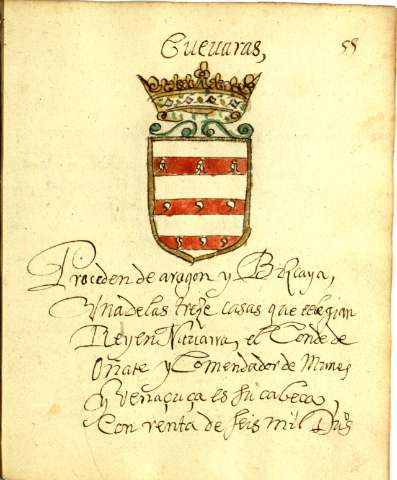 Gueuaras, 55
Proceden de aragon y Bizcaya,
Vna de las treze casas que elegian
Rey en Nauarra, el Conde de
Oñate y Comendador de
y es su cabeca,
Con renta de seis mil Dus